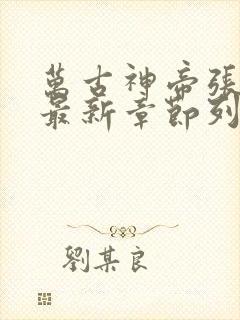 萬古神帝張
最新章節列
劉某良